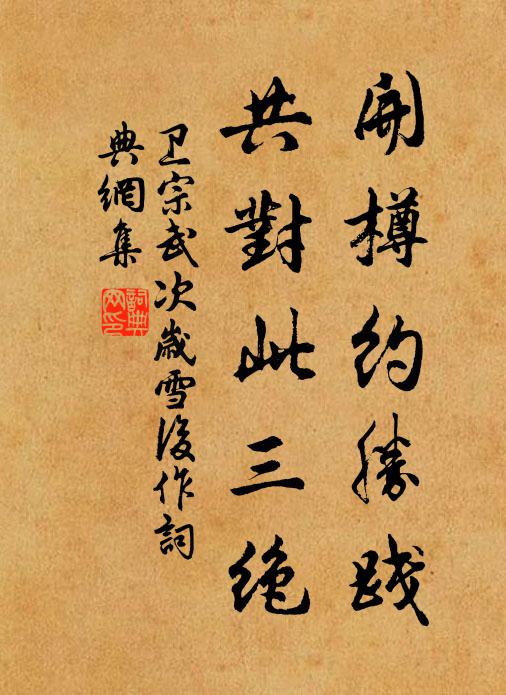 開樽約勝踐
共對此三絶
卫宗武次嵗雪後作詞
典網集
詞典網印